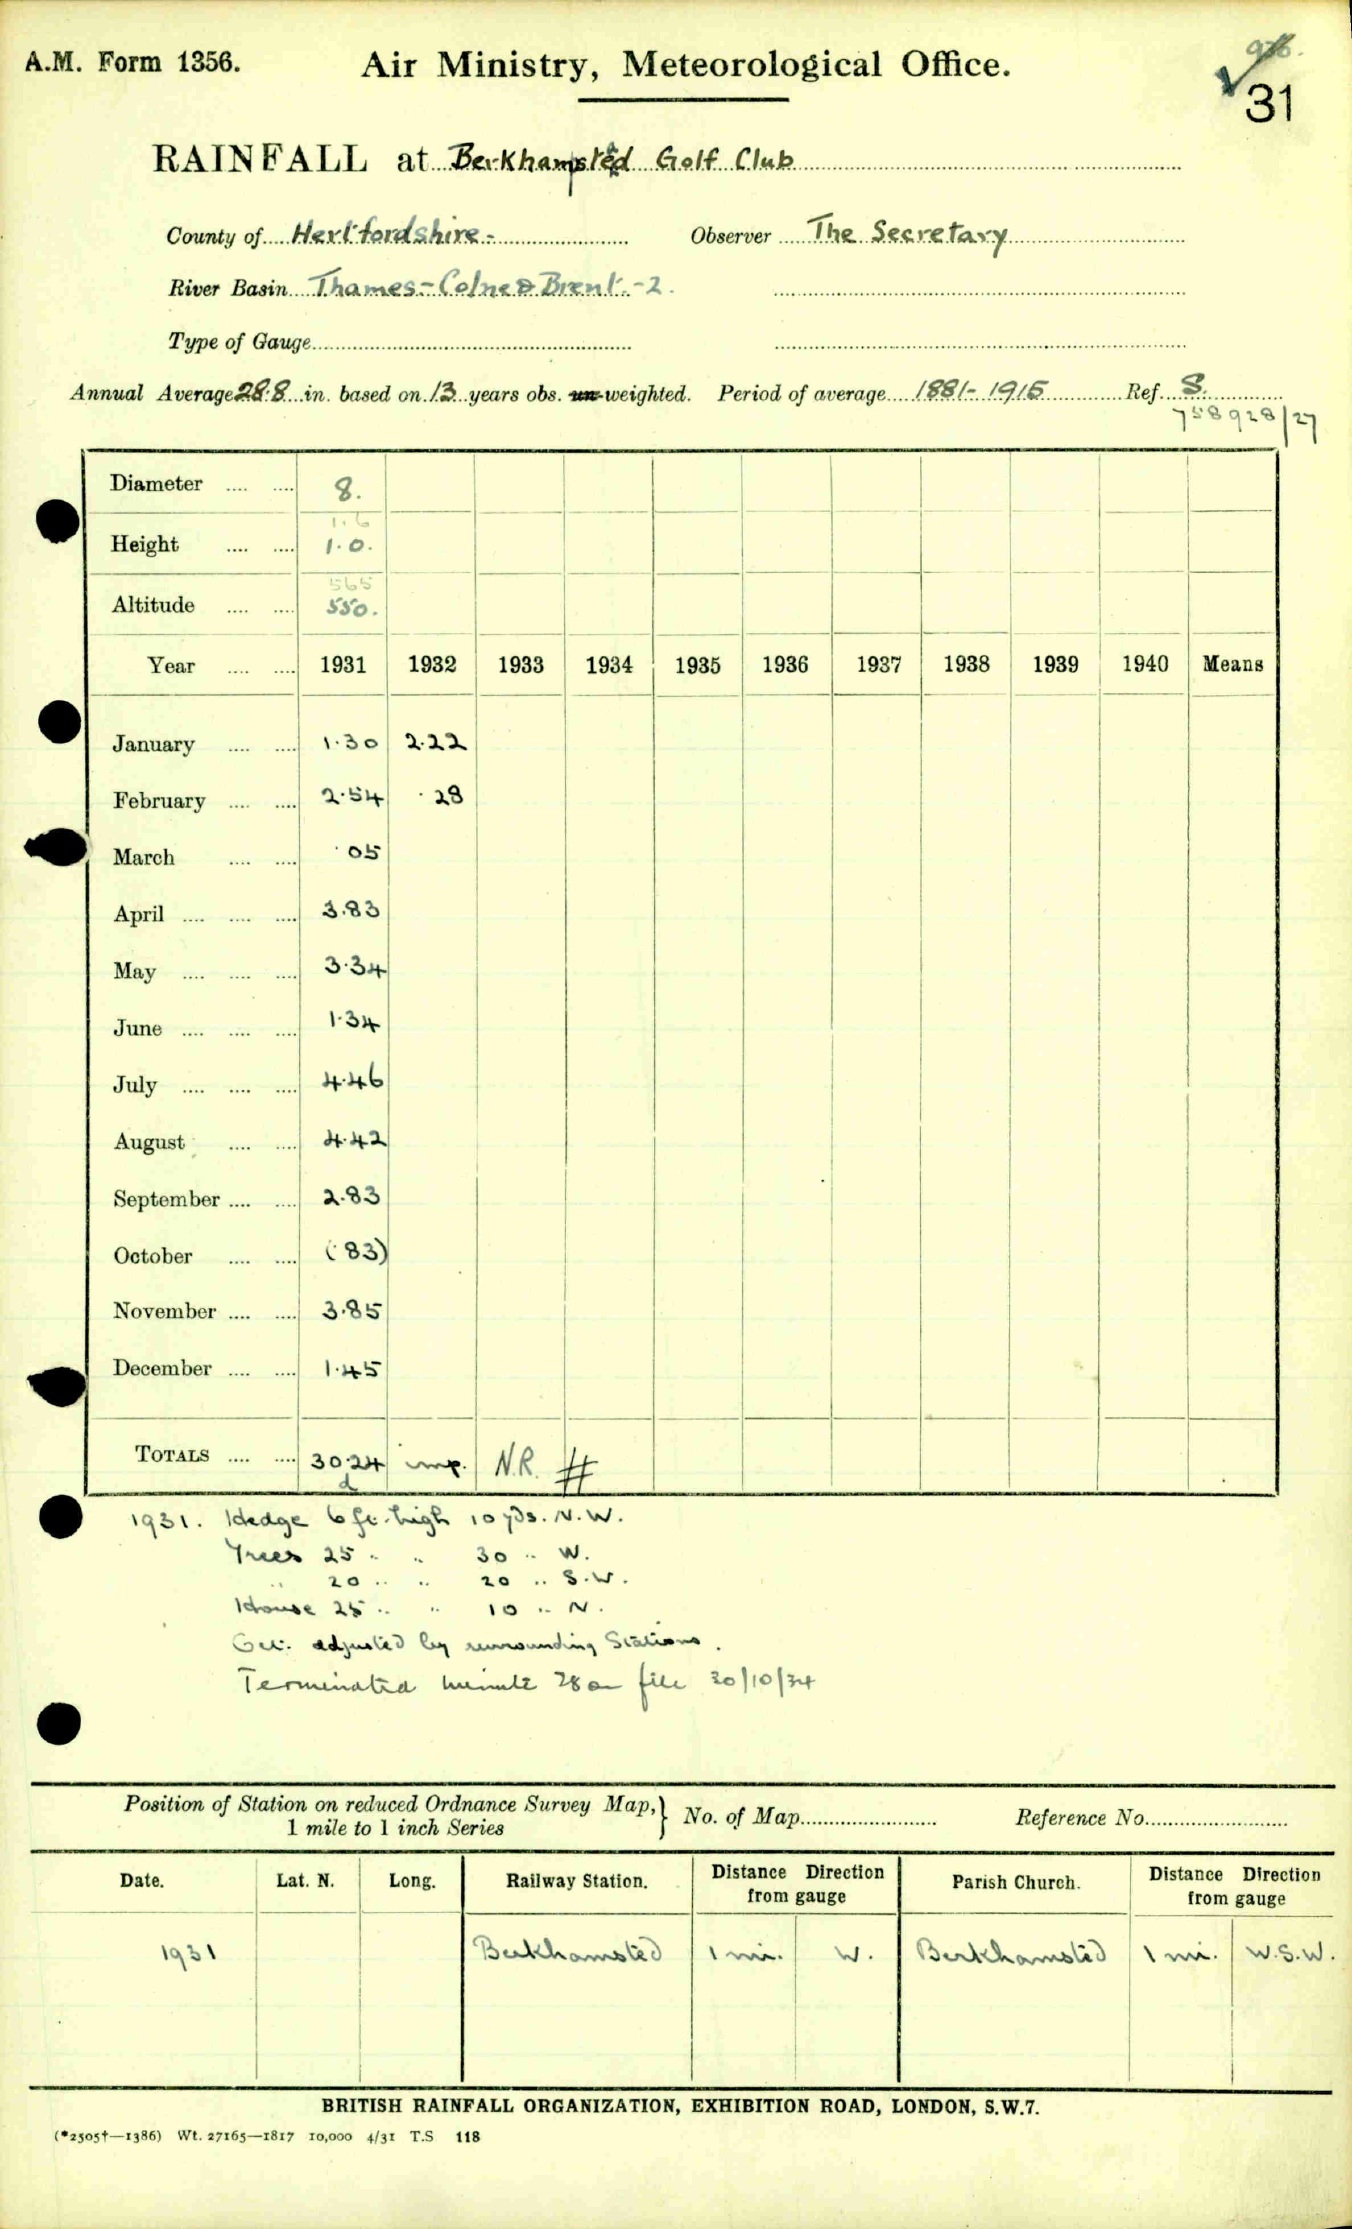 A.M. Form 1356.
Air Ministry, Meteorological Office.
31
RAINFALL at Berkhamsted Golf Club
County of Hertfordshire - Observer The Secretary
River Basin Thames - Colne & Brent. - 2.
Type of Gauge
Annual Average 28.8 in. based on 13 years obs. un-weighted. Period of average 1881-1915 Ref. S.
758928/27
Diameter 8.
1.6
Height 1.0.
565
Altitude 550.
Year 1931 1932 1933 1934 1935 1936 1937 1938 1939 1940 Means
January 1.30 2.22
February 2.54 .28
March .05
April 3.83
May 3.34
June 1.34
July 4.46
August 4.42
September 2.83
October (.83)
November 3.85
December 1.45
TOTALS 30.24 imp. N.R. #
d
1931. Hedge 6 ft. high 10 yds. N.W.
Trees 25 " " 30 " W.
" 20 " " 20 " S.W.
House 25 " " 10 " N.
Oct. adjusted by surrounding Stations.
Terminated minute 28 on file 30/10/34
Position of Station on reduced Ordnance Survey Map,} No. of Map Reference No.
1 mile to 1 inch Series
Date. Lat. N. Long. Railway Station. Distance Direction from gauge Parish Church. Distance Direction from gauge
1931 Berkhamsted 1 mi. W. Berkhamsted 1 mi. W.S.W.
BRITISH RAINFALL ORGANIZATION, EXHIBITION ROAD, LONDON, S.W.7.
(*2505†—1386) Wt. 27165—1817 10,000 4/31 T.S 118